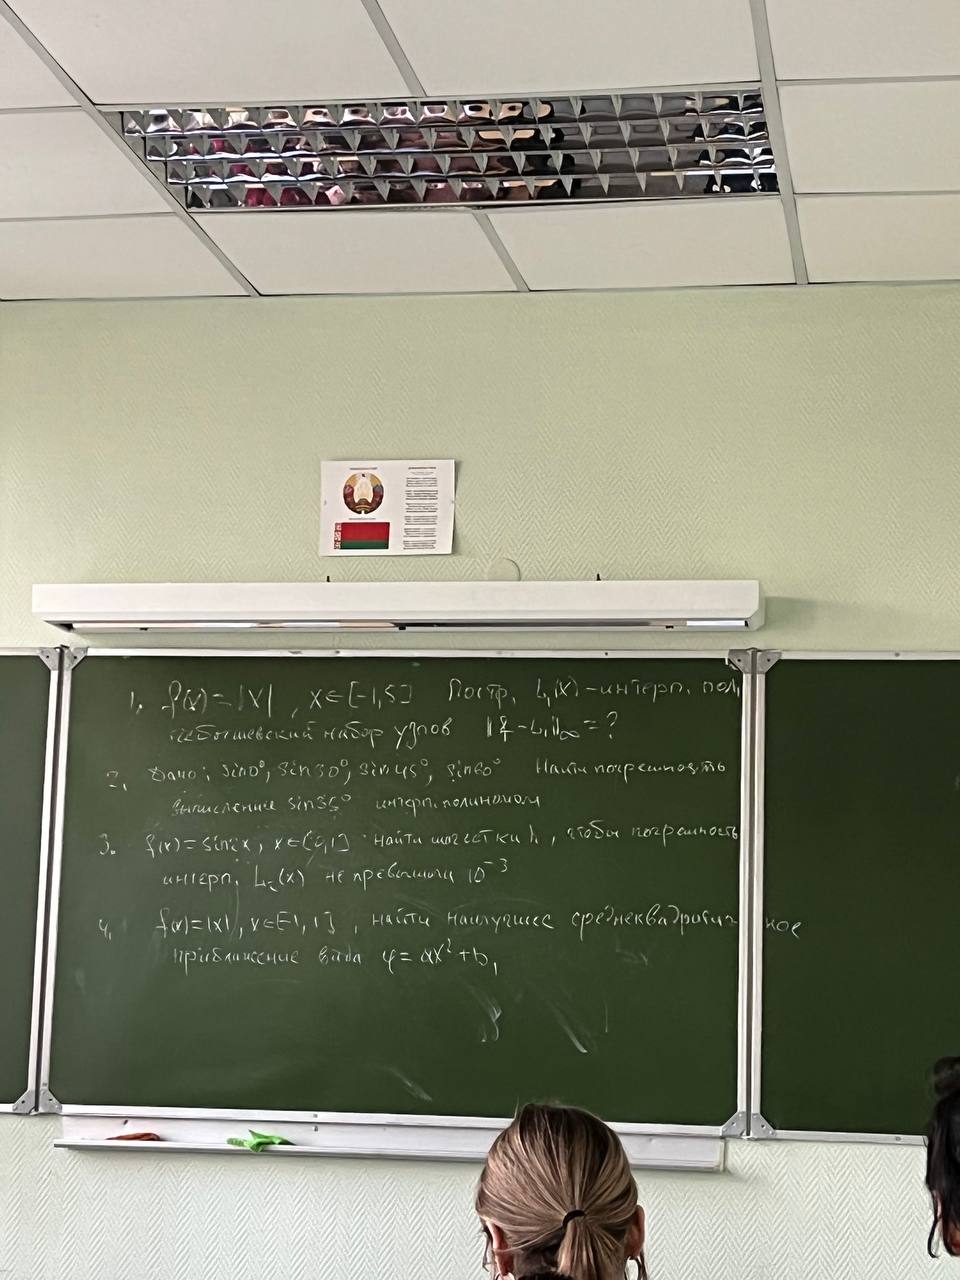 1. f(x) = |x| , x ∈ [-1,5] Постр. L₁(x) - интерп. пол.
чебышевский набор узлов ||f - L₁||∞ = ?
2. Дано: sin0°, sin30°, sin45°, sin60° Найти погрешность
вычисление sin35° интерп. полиномом
3. f(x) = sin2x, x ∈ [0,1] найти шаг сетки h, чтобы погрешность
интерп. L₂(x) не превышала 10⁻³
4. f(x) = |x|, x ∈ [-1, 1] , найти наилучшее среднеквадратичное
приближение вида φ = ax² + b,